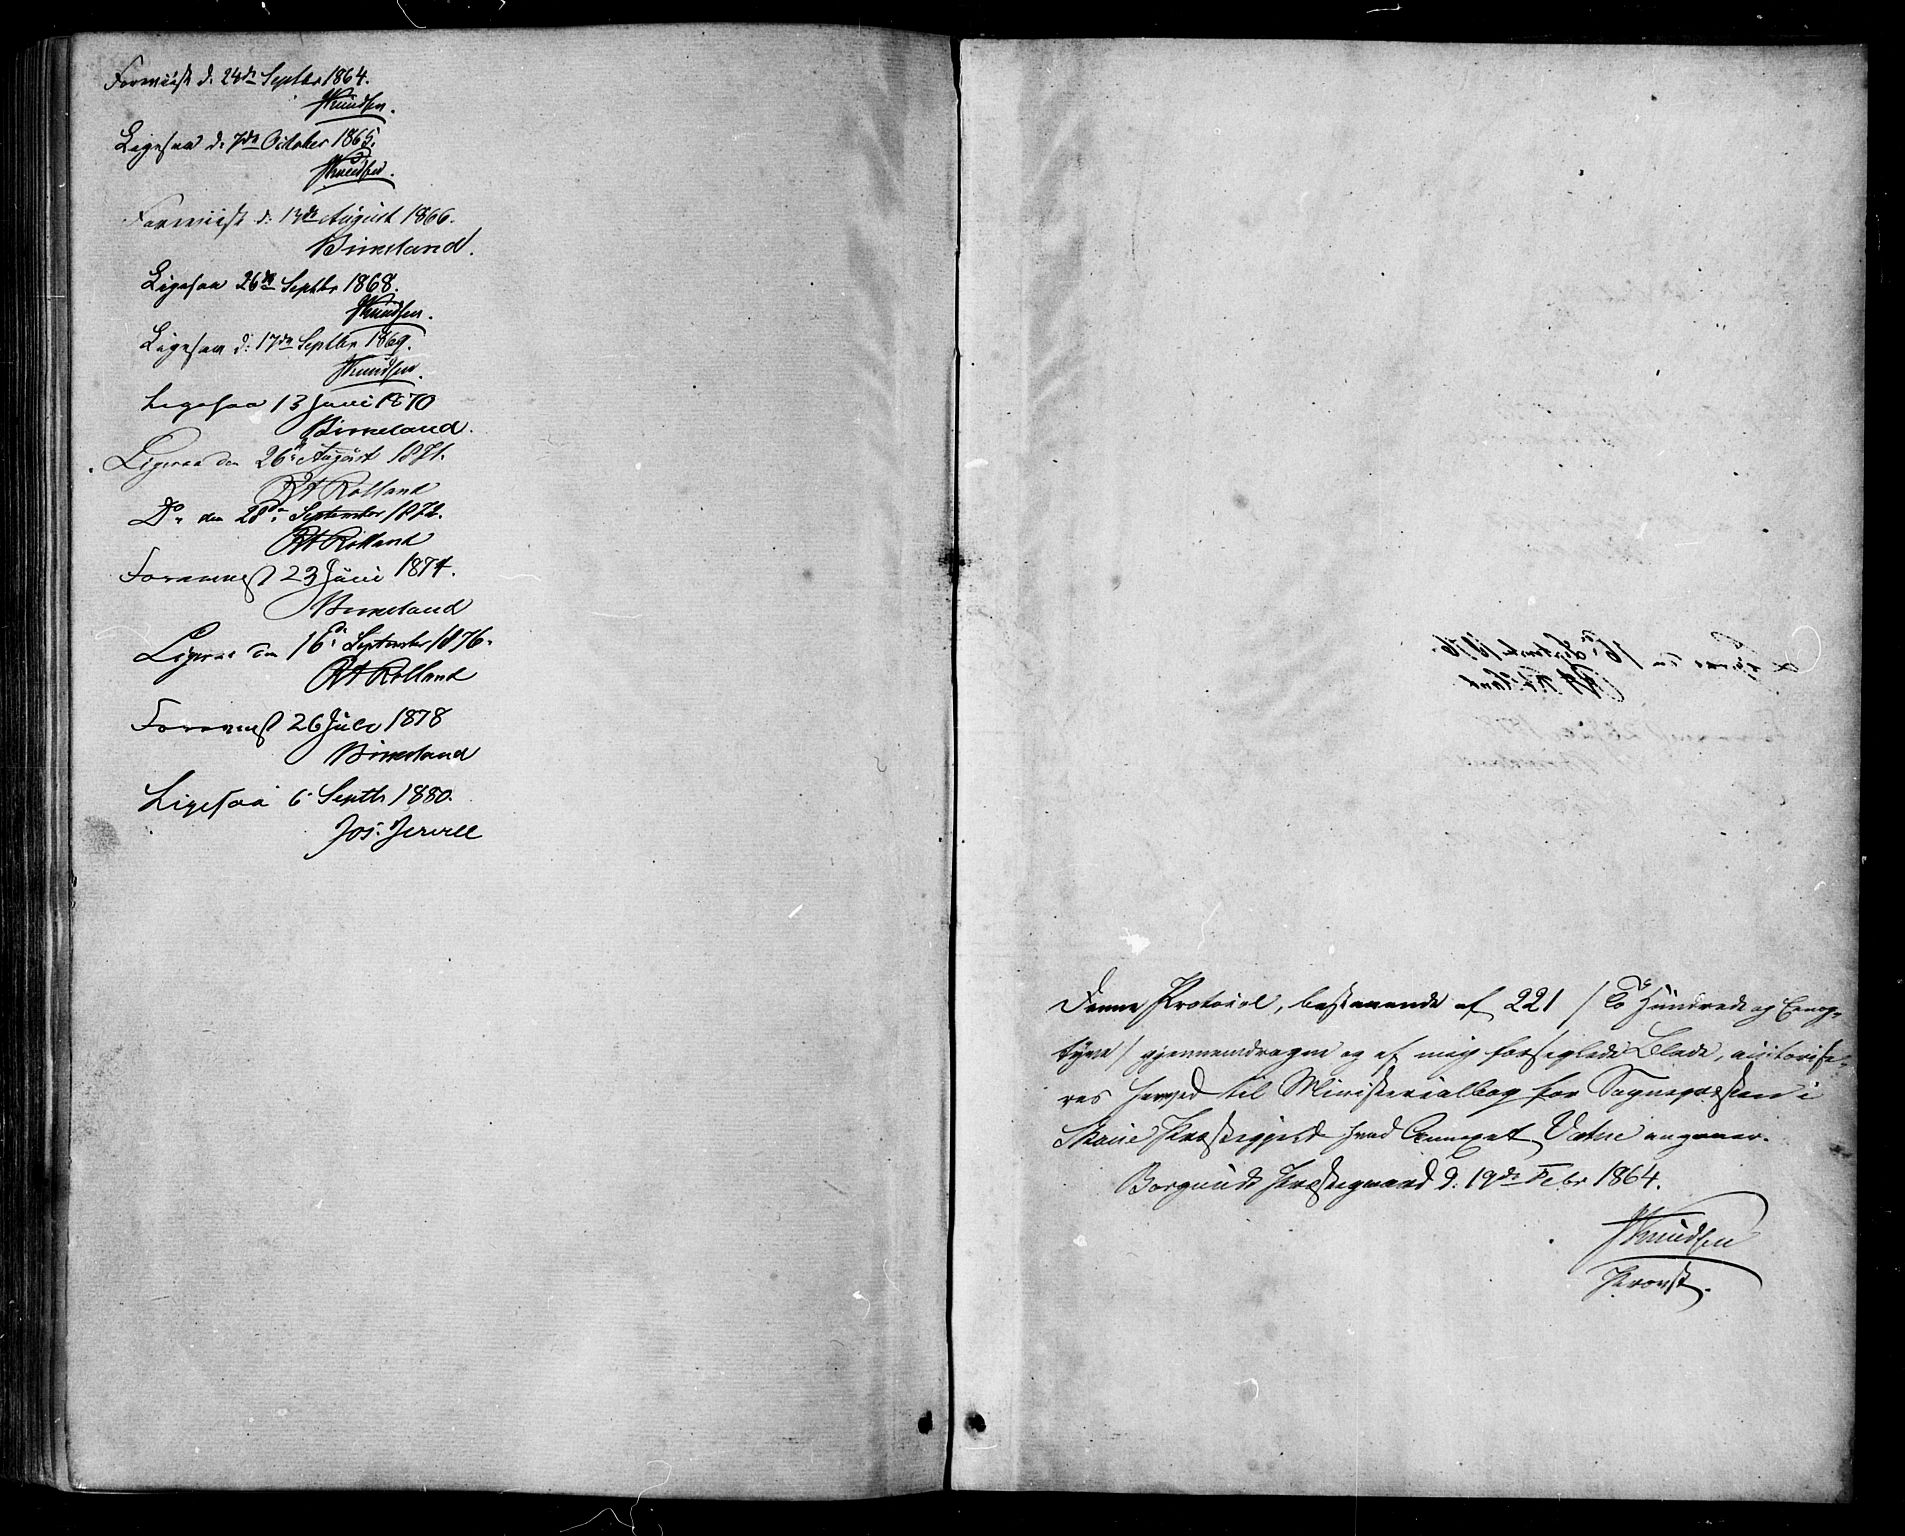 Foreviist d. 24de Septbr 1864.
JKnudsen.
Ligesaa d. 7de October 1865.
JKnudsen.
Foreviist d: 13de August 1866.
Birkeland.
Ligesaa 26de Septbr 1868.
JKnudsen.
Ligesaa d: 17de Septbr 1869.
JKnudsen.
Ligesaa 13 Juni 1870
Birkeland.
Ligesaa den 26de August 1871.
Rolland
Do den 28de September 1872.
Rolland
Forevist 23 Juni 1874.
Birkeland
Ligesaa den 16de September 1876.
Rolland
Forevist 26 Juli 1878
Birkeland
Ligesaa 6 Septb 1880.
Jos. Jervell
Denne Protocol, bestaaende af 221 / To Hundrede og Eenog-
tyve / gjennemdragne og af mig forseglede Blade, autorise-
res herved til Ministerialbog for Sognepræsten i
Skoue Præstegjeld hvad Annexet Vatne angaaer.
Borgunds Præstegaard d. 19de Febr 1864.
JKnudsen
Provst.